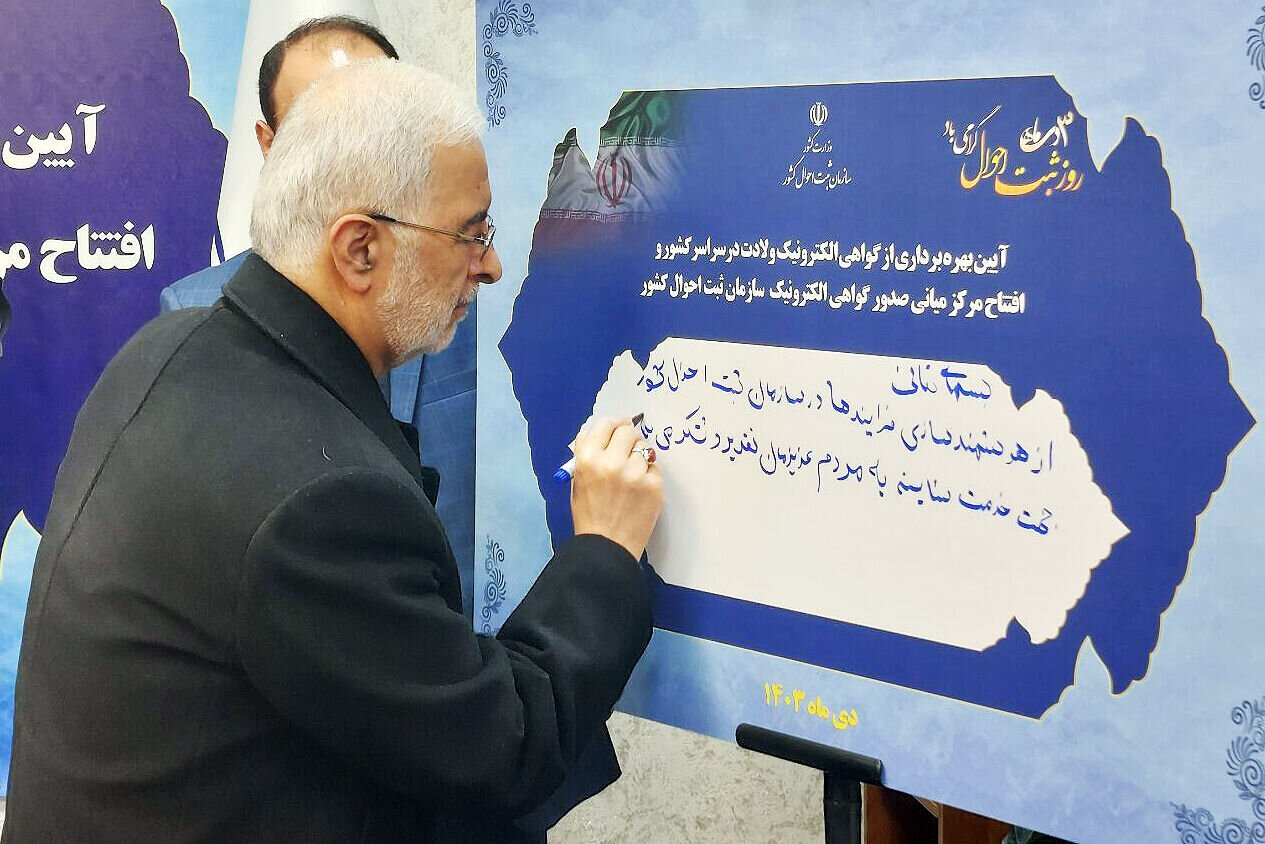 آیین
افتتاح مر
وزارت کشور
سازمان ثبت احوال کشور
۳ دی ماه
روز ثبت احوال گرامی باد
آیین بهره برداری از گواهی الکترونیک ولادت در سراسر کشور و
افتتاح مرکز میانی صدور گواهی الکترونیک سازمان ثبت احوال کشور
بسمه تعالی
از هوشمندسازی فرایندها در سازمان ثبت احوال کشور
جهت خدمت به مردم عزیزمان تقدیر و تشکر می
دی ماه ۱۴۰۳